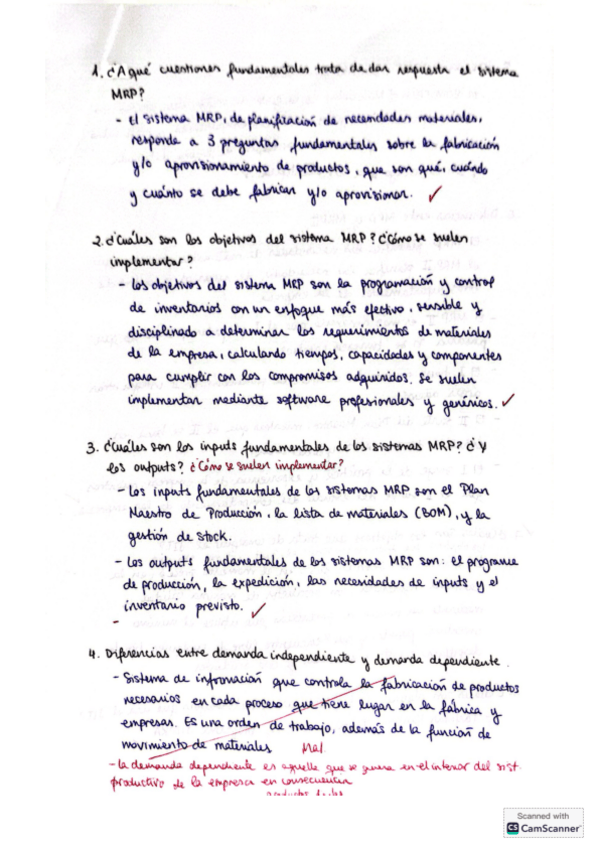 1. ¿A qué cuestiones fundamentales trata de dar respuesta el sistema
MRP?
- El sistema MRP, de planificación de necesidades materiales,
responde a 3 preguntas fundamentales sobre la fabricación
y/o aprovisionamiento de productos, que son qué, cuándo
y cuánto se debe fabricar y/o aprovisionar. ✓
2. ¿Cuáles son los objetivos del sistema MRP? ¿Cómo se suelen
implementar?
- Los objetivos del sistema MRP son la programación y control
de inventarios con un enfoque más efectivo, sensible y
disciplinado a determinar los requerimientos de materiales
de la empresa, calculando tiempos, capacidades y componentes
para cumplir con los compromisos adquiridos. Se suelen
implementar mediante software profesionales y genéricos. ✓
3. ¿Cuáles son los inputs fundamentales de los sistemas MRP? ¿Y
los outputs? ¿Cómo se suelen implementar?
- Los inputs fundamentales de los sistemas MRP son el Plan
Maestro de Producción, la lista de materiales (BOM), y la
gestión de stock.
- Los outputs fundamentales de los sistemas MRP son: el programa
de producción, la expedición, las necesidades de inputs y el
inventario previsto. ✓
-
4. Diferencias entre demanda independiente y demanda dependiente.
- Sistema de infromación que controla la fabricación de productos
necesarios en cada proceso que tiene lugar en la fábrica y
empresas. Es una orden de trabajo, además de la función de
movimiento de materiales Mal
- la demanda dependiente es aquella que se genera en el interior del sist.
productivo de la empresa en consecuencia
Scanned with
CS CamScanner